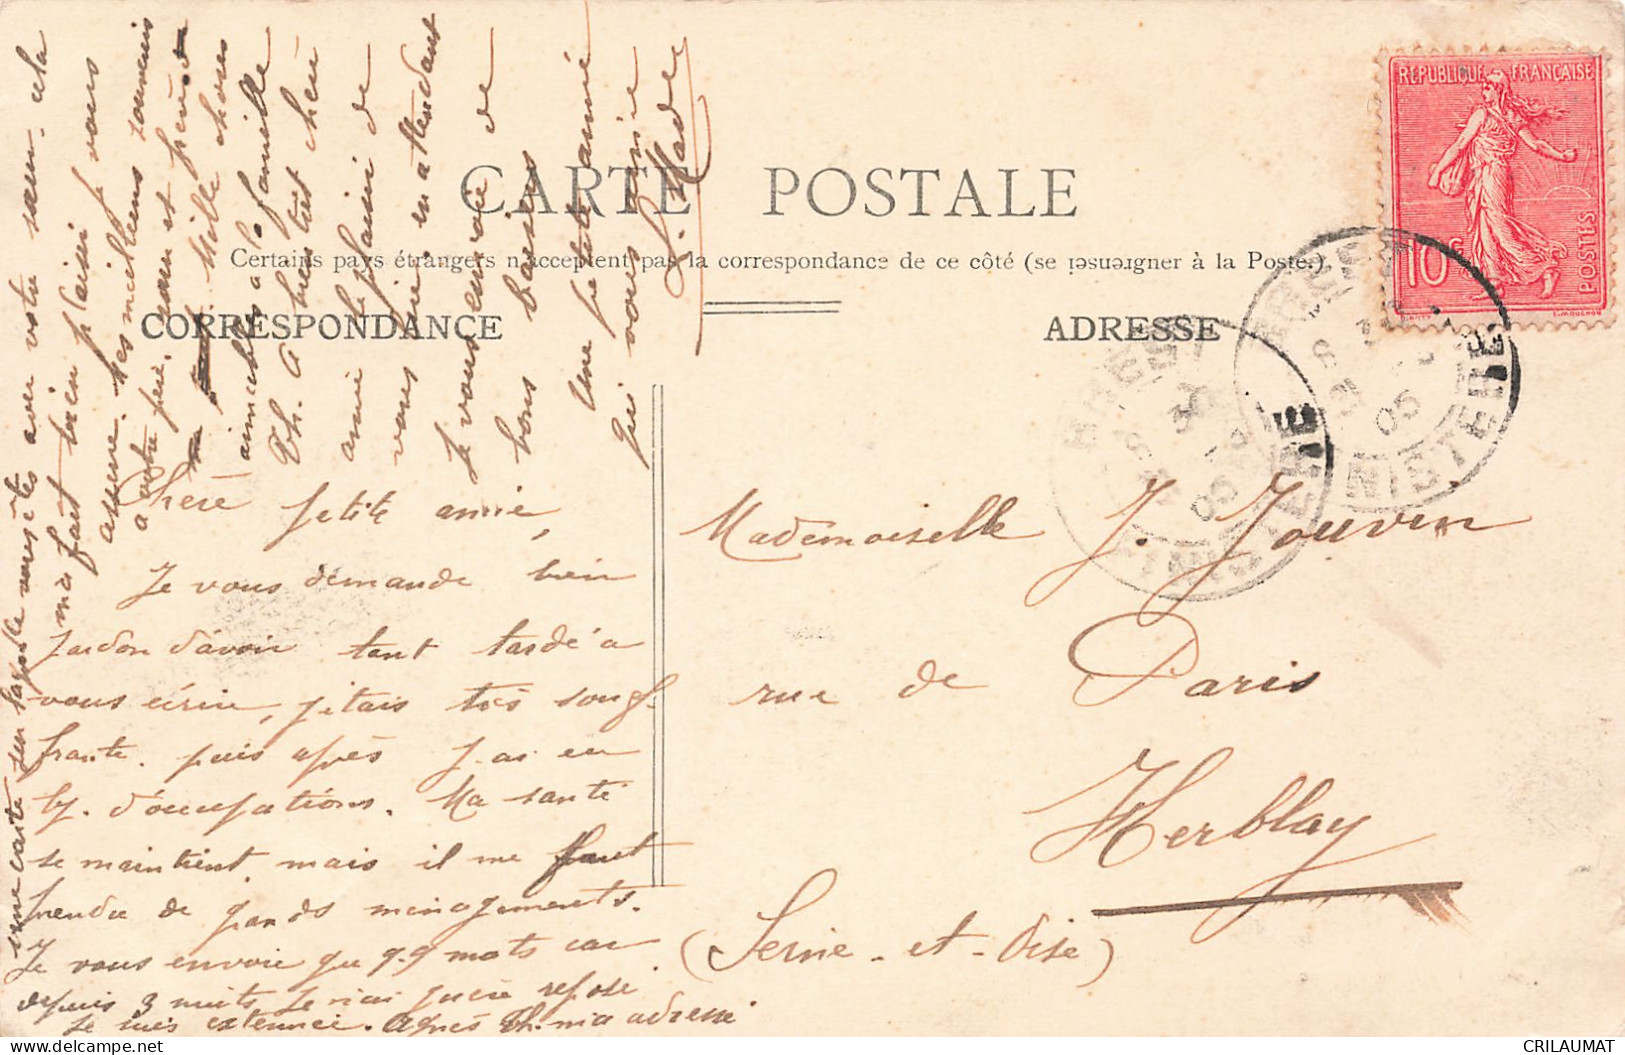 CARTE POSTALE
Certains pays étrangers n'acceptent pas la correspondance de ce côté (se renseigner à la Poste.)
CORRESPONDANCE
ADRESSE
REPUBLIQUE FRANÇAISE
10c
POSTES
BREST
FINISTERE
BREST
FINISTERE
Mademoiselle J. Jouvin
rue de Paris
Herblay
(Seine-et-Oise)
Chère petite amie,
Je vous demande bien
pardon d'avoir tant tardé a
vous écrire, j'étais très souf-
frante. puis après j'ai eu
bp. d'occupations. Ma santé
se maintient, mais il me faut
prendre de grands ménagements.
Je vous envoie que q.q mots car
depuis 3 nuits je n'ai guère reposé
je suis extenuée. Agnès Th. m'a adressé
une carte sur laquelle vous êtes avec votre sœur. cela
m'a fait bien plaisir je vous
assure. mes meilleurs souvenirs
a votre père,
Mille choses
aimables à la famille
Th. A bientôt chère
amie le plaisir de
vous
en attendant
Je vous envoie de
bons baisers
Une petite amie
qui vous aime
CRILAUMAT